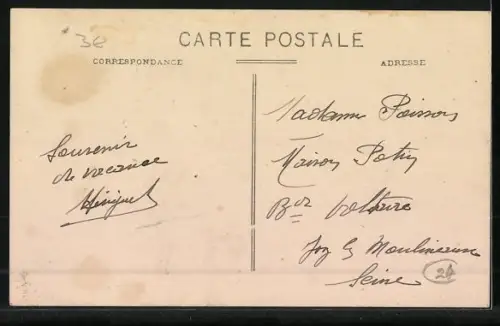 38
CARTE POSTALE
CORRESPONDANCE
ADRESSE
Souvenir
de vacance
Madame Poisson
Maison Potin
Bd Voltaire
Issy les Moulineaux
Seine
24